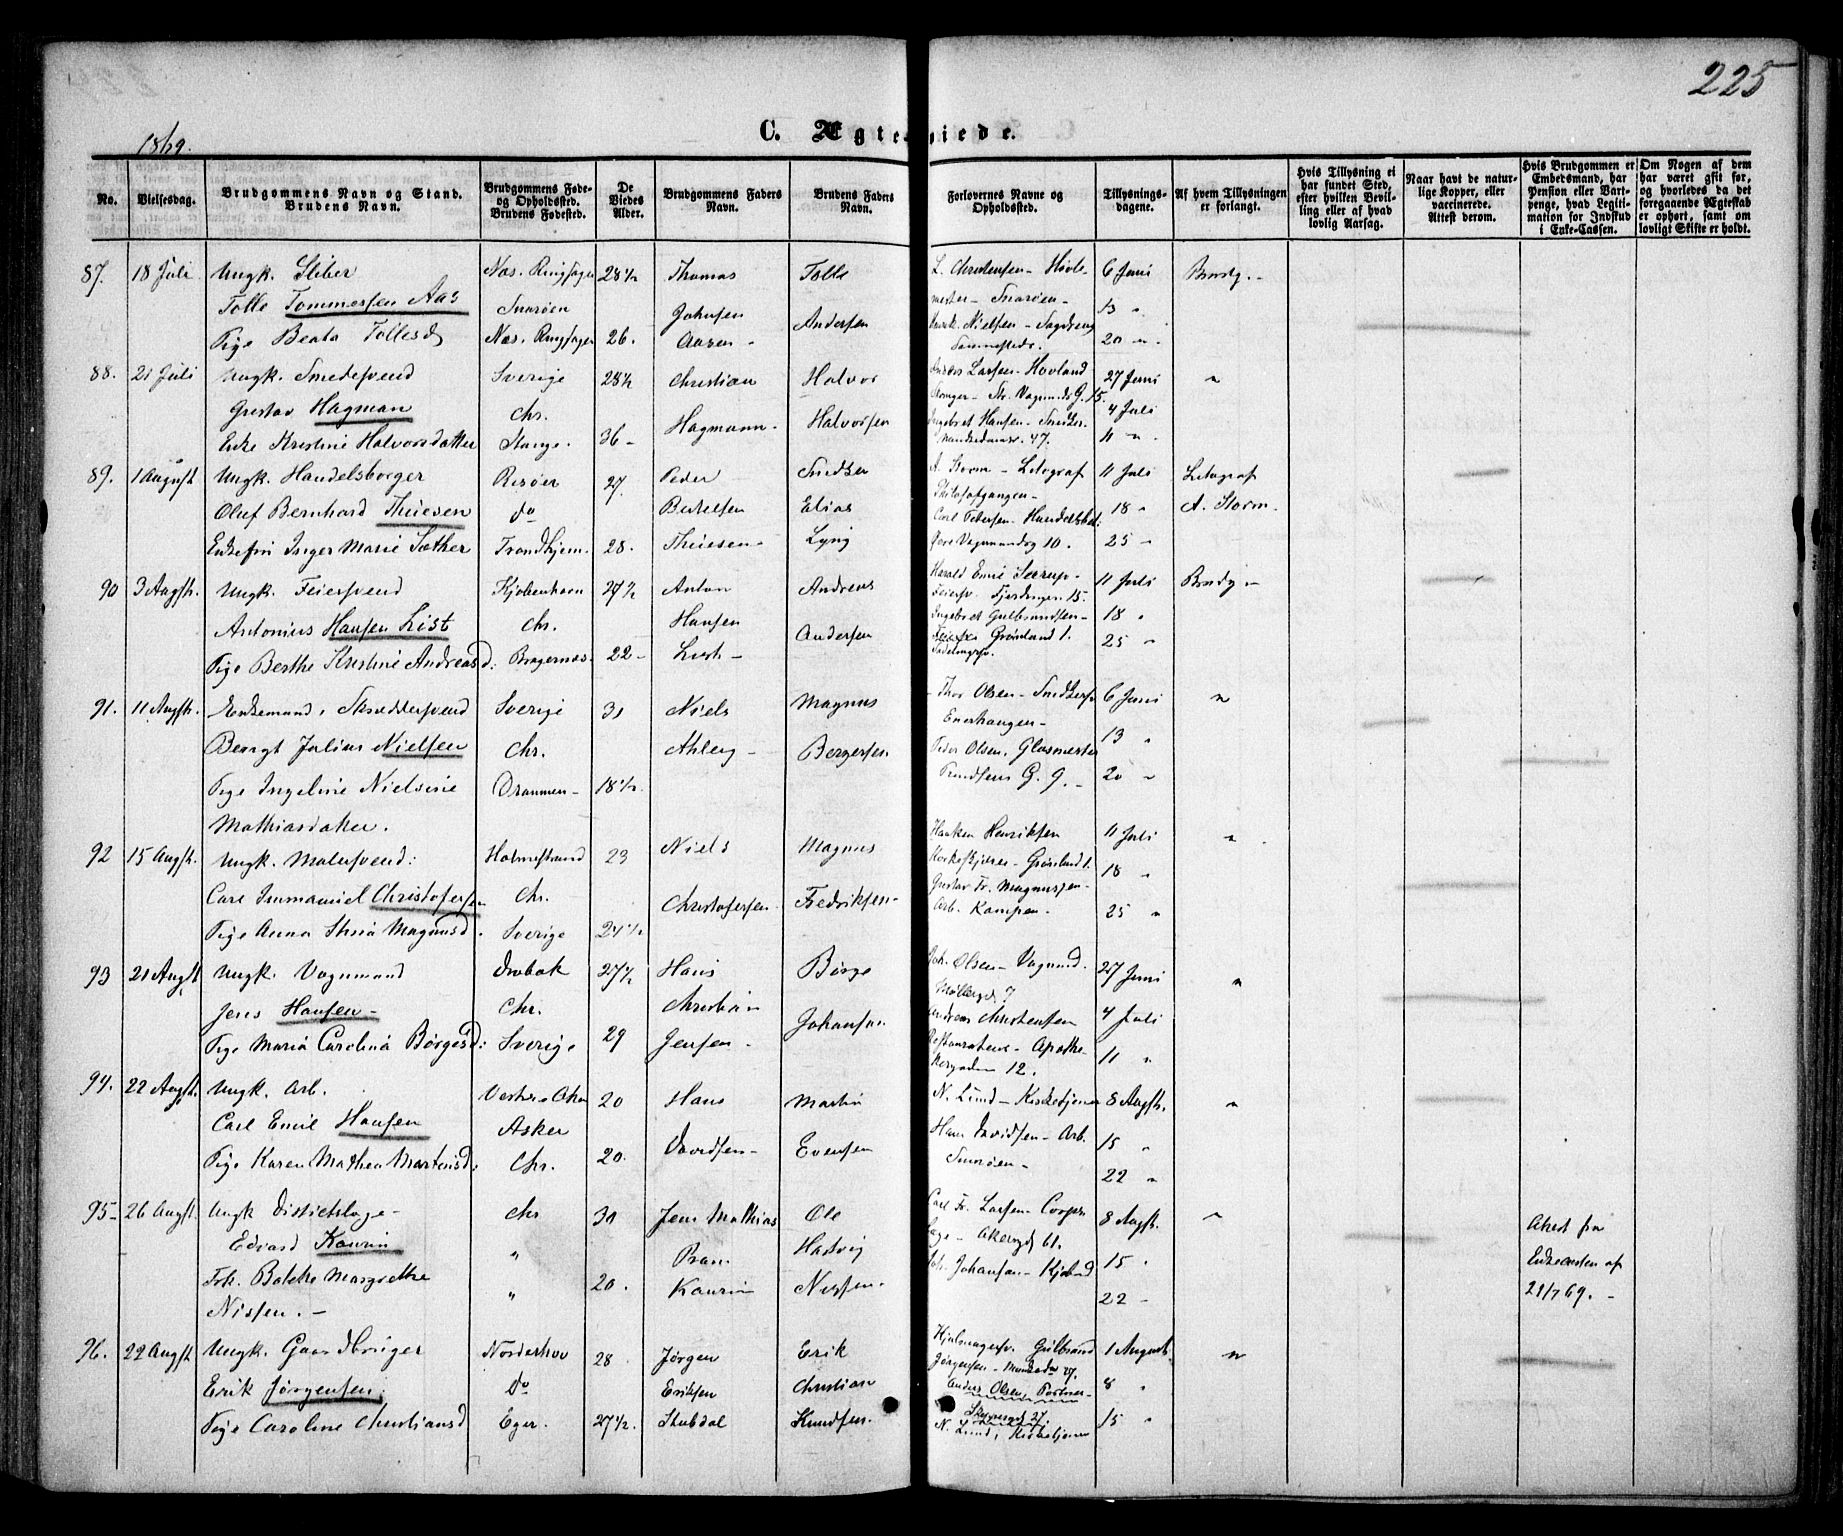 225
C. Ægteviede.
1869.
No.
Vielsesdag.
Brudgommens Navn og Stand. Brudens Navn.
Brudgommens Føde- og Opholdssted. Brudens Fødested.
De Viedes Alder.
Brudgommens Faders Navn.
Brudens Faders Navn.
Forlovernes Navne og Opholdssted.
Tillysnings-dagene.
Af hvem Tillysningen er forlangt.
Hvis Tillysning ei har fundet Sted, efter hvilken Bevilling eller af hvad lovlig Aarsag.
Naar havt de naturlige Kopper, eller vaccinerede. Attest derom.
Hvis Brudgommen er Embedsmand, har Pension eller Vartpenge, hvad Legitimation for Indskud i Enke-Cassen.
Om Nogen af dem har været gift før, og hvorledes da det foregaaende Ægteskab er ophørt, samt om lovligt Skifte er holdt.
87. 18 Juli Ungk. Sliber Næs. Ringsager 28½ Thomas Tolle L. Christensen - Høvle- 6 Juni Brudg. -
Tolle Tommessen Aas Snarøen Johnsen Andersen mester - Snarøen - 13 "
Pige Beata Tollesd Næs. Ringsager 26. Aasen - Nielsen - Sagdreng 20 "
88. 21 Juli Ungk. Smedesvend Sverige 28½ Christian Halvor Anders Larsen - Hovland 27 Juni "
Gustav Hagman Chr. Hagmann - Halvorsen St. Vognmds G. 15. 4 Juli
Enke Kristine Halvorsdatter Stange. 36 - Ingebret Hansen - Snedker 47. 11 "
89. 1 August Ungk. Handelsborger Risøer 27. Peder Snedker A. Storm - Litograf 11 Juli Litograf
Oluf Bernhard Thiesen do Bertelsen Elias Philosofgangen - 18 " A. Storm.
Enkefru Inger Marie Sæther Trondhjem. 28. Thiesen - Lyng Carl Petersen - Handelsbet. Øvre Vognmandsg 10. 25 -
90 3 Augst. Ungk. Feiersvend Kjøbenhavn 27½ Anton Andreas Harald Emil Seerup - 11 Juli Brudg -
Antonius Hansen List Chr. Hansen Andersen Feiersv. Fjerdingen 15. Ingebret Gulbrandsen - 18 "
Pige Berthe Kristine Andreasd: Bragernæs - 22 - List - Grønland 1. 25 "
91. 11 Augst. Enkemand, Skreddersvend Sverige 31 Niels Magnus Thor Olsen - Snedkersv 6 Juni "
Bengt Julius Nielsen Chr. Ahlberg - Bergersen Enerhaugen - 13 "
Pige Ingeline Nielsine Drammen - 18½. Peder Olsen. Glasmester Knudsens G. 9. - 20 "
Mathiasdatter.
92 15 Augst. Ungk. Malersvend: Holmestrand 23 Niels Magnus Haaken Henriksen 11 Juli "
Carl Immanuel Christofersen Chr. Christofersen - Fredriksen - Grønland 1. 18 "
Pige Anna Stina Magnusd. Sverige 24½ Gustav Fr. Magnussen - Arb. Kampen. 25 "
93 21 Augst Ungk. Vognmand Drøbak 27½ Hans Børge Joh. Olsen - Vognmd. 27 Juni "
Jens Hansen - Chr. Christian Johansen Møllergd 7 Andreas Christensen 4 Juli
Pige Maria Carolina Børgesd: Sverige 29 Jensen - Restaurateur - Apothekergaden 12. 11 "
94. 22 Augst. Ungk. Arb. Vestre Aker 20 Hans Martin N. Lund - Kirketjener 8 Augst. "
Carl Emil Hansen Asker Davidsen - Evensen Hans Davidsen - Arb. 15 "
Pige Karen Mathea Martinsd. Chr. 20. Snarøen - 22 "
95 - 26 Augst. Ungk Districtslæge - Chr 31 Jens Mathias Ole Carl Fr. Larsen - Corps- 8 Augst. " Attest fra
Edvard Kaurin " Pram Hartvig læge - Akersgd 61. 15 " Enkecassen af
Frk. Bolette Margrethe " 20. Kaurin Nissen - Joh. Johansen - Kjøbmd 22 - 21/7 69. -
Nissen. -
96. 22 Augst Ungk. Gaardbruger Norderhov 28 Jørgen Erik Hjulmagersv. Gulbrand 1 August "
Erik Jørgensen. Do Eriksen Christian Jørgensen - 27. 8 "
Pige Caroline Christiansd Eger. 27½ Stubdal Knudsen. Anders Olsen Portner - 27. N. Lund, Kirketjener 15 "